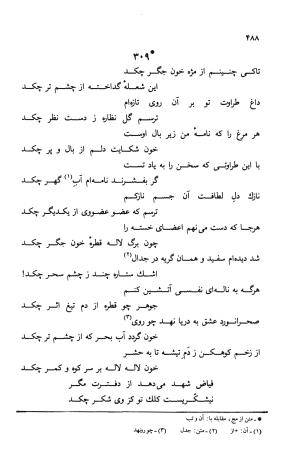 ۴۸۸
۳۰۹*
تاکی چنینم از مژه خون جگر چکد
این شعلهٔ گداخته از چشم تر چکد
داغ طراوت تو بر آن روی تازه‌ام
ترسم گل نظاره ز دست نظر چکد
هر مرغ را که نامهٔ من زیر بال اوست
خون شکایت دلم از بال و پر چکد
با این طراوتی که سخن را به یاد تست
گر بفشرند نامه‌ام آب (۱) گهر چکد
نازك دل لطافت آن جسم نازکم
ترسم که عضو عضوی از یکدیگر چکد
هرجا که دست می‌نهم اعضای خسته را
چون برگ لاله قطرهٔ خون جگر چکد
شد دیده‌ام سفید و همان گریه در جدال (۲)
اشك ستاره چند ز چشم سحر چکد!
هرگه به ناله‌ای نفسی آتشین کنم
جوهر چو قطره از دم تیغ اثر چکد
صحرانورد عشق به دریا نهد چو روی (۳)
خون گردد آب بحر که از چشم تر چکد
از زخم کوهکن ز دم تیشه تا به حشر
خون لاله لاله بر سر کوه و کمر چکد
فیاض شهد می‌دهد از دفترت مگر
نیشکّرست کلك تو کز وی شکر چکد
* ـ متن از مج، مقابله با: آن و لب
(۱)ـ آن: +از (۲)ـ متن: جدل (۳)ـ چو رو نهد